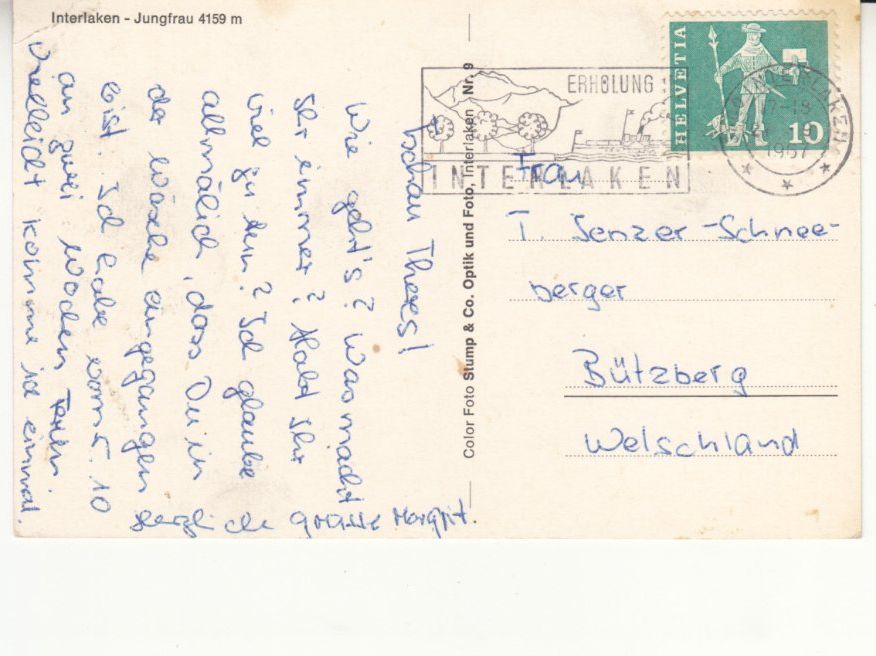 Interlaken - Jungfrau 4159 m
Tschau Theres!
Wie geht's? Was macht
Ihr immer? Habt Ihr
viel zu tun? Ich glaube
allmälich, dass Du in
der Wäsche eingegangen
bist. Ich habe vom 5. 10
an zwei Wochen Ferien.
Vielleicht komme ich einmal.
Herzliche Grüsse Margrit.
Color Foto Stump & Co. Optik und Foto, Interlaken Nr. 9
ERHOLUNG
INTERLAKEN
HELVETIA
10
INTERLAKEN
-18
1967
Frau
T. Jenzer-Schnee-
berger
Bützberg
Welschland